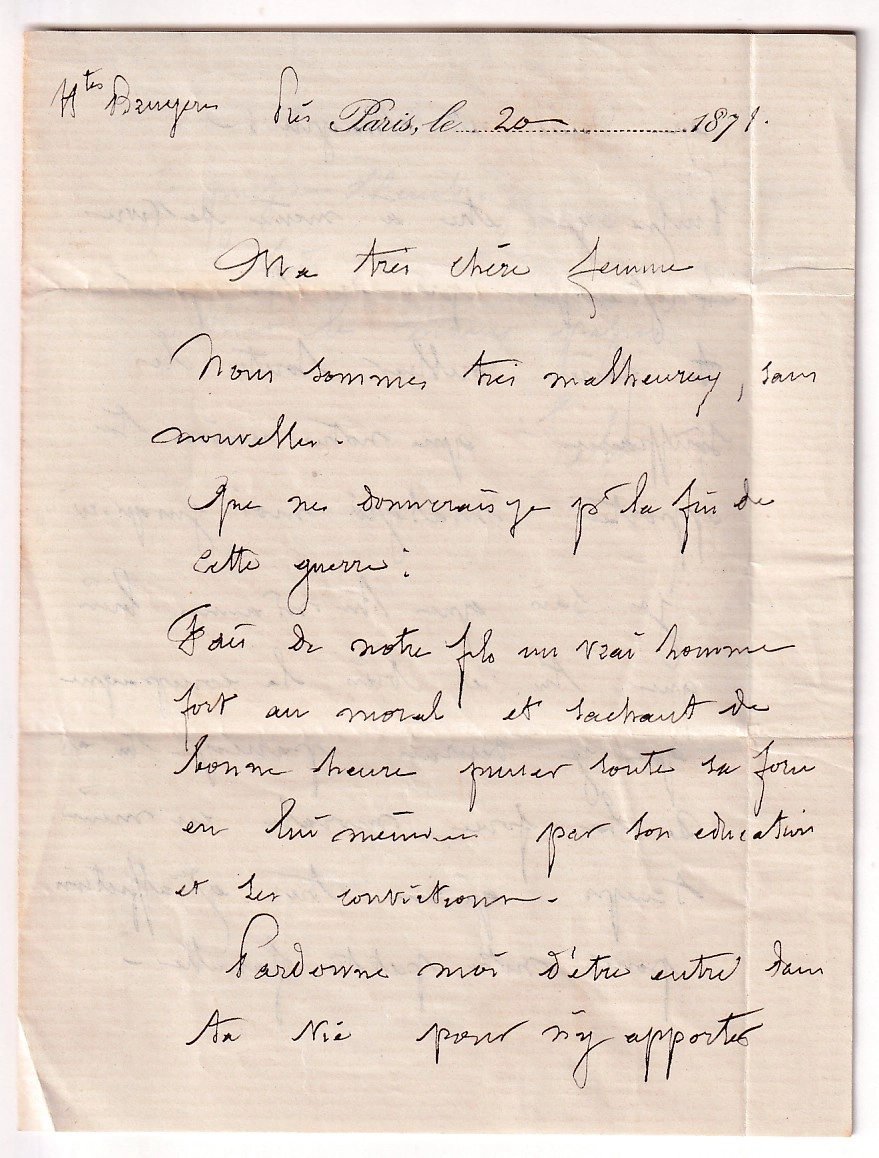 Htes Bruyeres près Paris, le 20 1871.
Ma très chère femme
Nous sommes très malheureux, sans
nouvelles.
Que ne donnerais je pr la fin de
cette guerre!
Fais de notre fils un vrai homme
fort au moral et sachant de
bonne heure puiser toute sa force
en lui même par son education
et ses convictions.
Pardonne moi d'être entré dans
ta vie pour n'y apporter